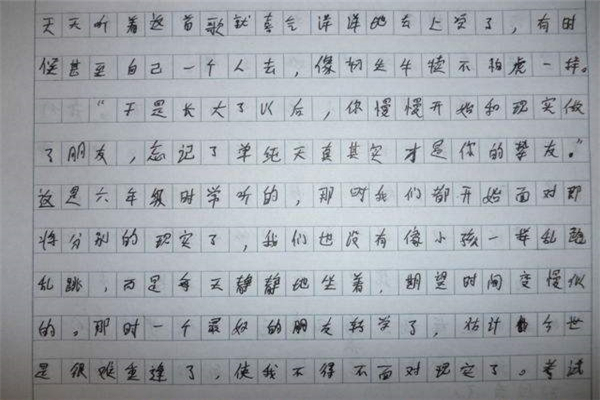 天天听着这首歌就喜气洋洋地去上学了，有时
侯甚至自己一个人去，像初生牛犊不怕虎一样。
“于是长大了以后，你慢慢开始和现实做
了朋友，忘记了单纯天真其实才是你的挚友。”
这是六年级时学听的，那时我们都开始面对即
将分别的现实了，我们也没有像小孩一样乱跑
乱跳，而是每天静静地坐着，期望时间变慢似
的。那时一个最好的朋友转学了，估计今世
是很难重逢了，使我不得不面对现实了。考试